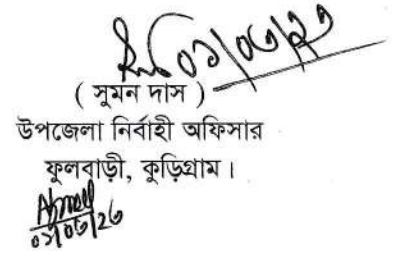 ০১/০৩/২৩
( সুমন দাস )
উপজেলা নির্বাহী অফিসার
ফুলবাড়ী, কুড়িগ্রাম।